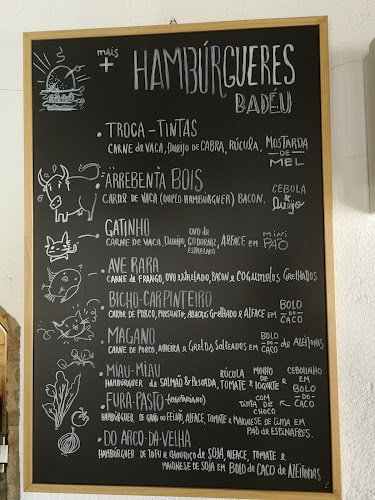 mais
+ HAMBÚRGUERES
BADÉU
• TROCA-TINTAS
CARNE de VACA, Queijo de CABRA, RÚCULA, MOSTARDA DE MEL
• ARREBENTA BOIS
CARNE DE VACA (DUPLO HAMBÚRGUER) BACON, CEBOLA & Queijo
• GATINHO
CARNE DE VACA, Queijo, OVO de CODORNIZ ESTRELADO, ALFACE em MINI PÃO
• AVE RARA
CARNE de FRANGO, OVO ESTRELADO, BACON e COGUMELOS GRELHADOS
• BICHO-CARPINTEIRO
CARNE DE PORCO, PRESUNTO, ABACAXI GRELHADO e ALFACE em BOLO DO CACO
• MAGANO
CARNE DE PORCO, ALHEIRA e GRELOS SALTEADOS em BOLO DO CACO de AZEITONAS
• MIAU-MIAU
HAMBÚRGUER de SALMÃO & PESCADA, RÚCULA TOMATE & MOLHO DE IOGURTE e CEBOLINHO em BOLO DO CACO COM TINTA DE CHOCO
• FURA-PASTO (vegetariano)
HAMBÚRGUER DE GRÃO ou FEIJÃO, ALFACE, TOMATE e MAIONESE DE LIMA em PÃO DE ESPINAFRES.
• DO ARCO-DA-VELHA
HAMBÚRGUER DE TOFU e CHOURIÇO de SOJA, ALFACE, TOMATE e
MAIONESE DE SOJA em BOLO do CACO de AZEITONAS